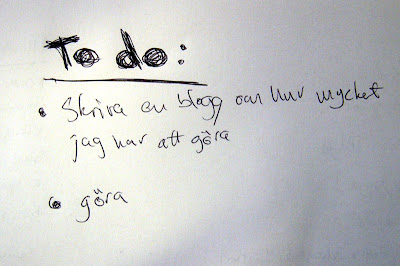 To do:
• Skriva en blogg om hur mycket
jag har att göra
• göra